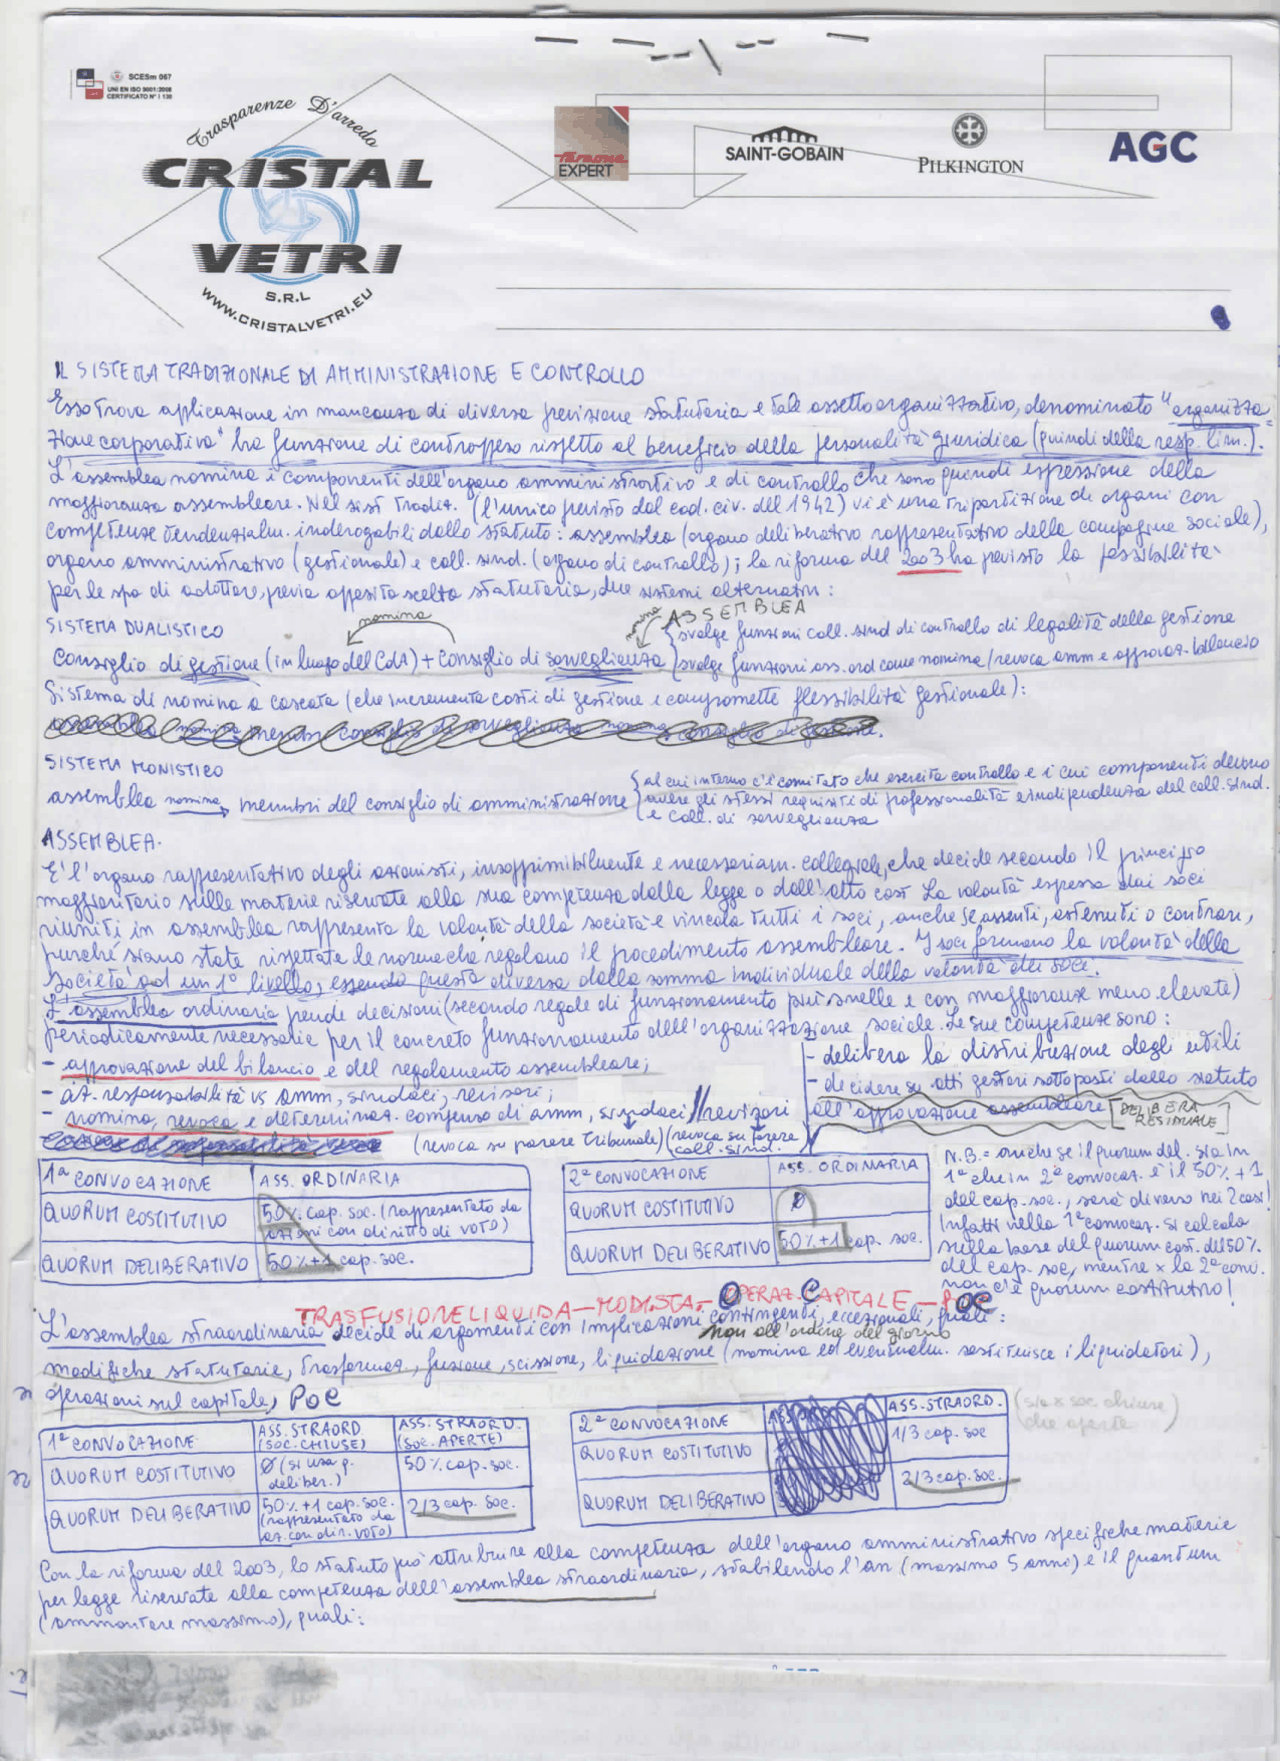 SCESm 067
UNI EN ISO 9001:2008
CERTIFICATO N° I 130
Trasparenze D'arredo
CRISTAL
VETRI
S.R.L
WWW.CRISTALVETRI.EU
EXPERT
SAINT-GOBAIN
PILKINGTON
AGC
IL SISTEMA TRADIZIONALE DI AMMINISTRAZIONE E CONTROLLO
Esso trova applicazione in mancanza di diversa previsione statutaria e tale assetto organizzativo, denominato "organizza=
zione corporativa" ha funzione di contrappeso rispetto al beneficio della personalità giuridica (quindi della resp. lim.).
L'assemblea nomina i componenti dell'organo amministrativo e di controllo che sono quindi espressione della
maggioranza assembleare. Nel sist. tradiz. (l'unico previsto dal cod. civ. del 1942) vi è una tripartizione di organi con
competenze tendenzialm. inderogabili dallo statuto: assemblea (organo deliberativo rappresentativo della compagine sociale),
organo amministrativo (gestionale) e coll. sind. (organo di controllo); la riforma del 2003 ha previsto la possibilità
per le spa di adottare, previa apposita scelta statutaria, due sistemi alternativi:
SISTEMA DUALISTICO
nomina
nomina
ASSEMBLEA
Consiglio di gestione (in luogo del CdA) + Consiglio di sorveglianza
svolge funzioni coll. sind di controllo di legalità della gestione
svolge funzioni ass. ord come nomina/revoca amm e approvaz. bilancio
Sistema di nomina a cascata (che incrementa costi di gestione e compromette flessibilità gestionale):
SISTEMA MONISTICO
assemblea nomina membri del consiglio di amministrazione
al cui interno c'è comitato che esercita controllo e i cui componenti devono
avere gli stessi requisiti di professionalità e indipendenza del coll. sind.
e coll. di sorveglianza
ASSEMBLEA.
E' l'organo rappresentativo degli azionisti, insopprimibilmente e necessariam. collegiale, che decide secondo il principio
maggioritario sulle materie riservate alla sua competenza dalla legge o dall'atto cost. La volontà espressa dai soci
riuniti in assemblea rappresenta la volontà della società e vincola tutti i soci, anche se assenti, astenuti o contrari,
purché siano state rispettate le norme che regolano il procedimento assembleare. I soci formano la volontà della
società ad un 1° livello, essendo questa diversa dalla somma individuale della volontà dei soci.
L'assemblea ordinaria prende decisioni (secondo regole di funzionamento più snelle e con maggioranze meno elevate)
periodicamente necessarie per il concreto funzionamento dell'organizzazione sociale. Le sue competenze sono:
- approvazione del bilancio e del regolamento assembleare;
- az. responsabilità vs amm, sindaci, revisori;
- nomina, revoca e determinaz. compenso di amm, sindaci // revisori
(revoca su parere tribunale) (revoca su parere
coll. sind.
- delibera la distribuzione degli utili
- decidere su atti gestori sottoposti dallo statuto
all'approvazione assembleare [DELIBERA
RESIDUALE]
1ª CONVOCAZIONE ASS. ORDINARIA
QUORUM COSTITUTIVO 50% cap. soc. (rappresentato da
azioni con diritto di voto)
QUORUM DELIBERATIVO 50%+1 cap. soc.
2ª CONVOCAZIONE ASS. ORDINARIA
QUORUM COSTITUTIVO Ø
QUORUM DELIBERATIVO 50%+1 cap. soc.
N.B.= anche se il quorum del. sia in
1ª che in 2ª convocaz. è il 50%+1
del cap. soc., sarà diverso nei 2 casi!
Infatti nella 1ª convocaz. si calcola
sulla base del quorum cost. del 50%
del cap. soc, mentre x la 2ª conv.
non c'è quorum costitutivo!
TRASFUSIONELIQUIDA-MODISTA-OPERAZ. CAPITALE-POC
L'assemblea straordinaria decide di argomenti con implicazioni contingenti, eccezionali, quali:
non all'ordine del giorno
modifiche statutarie, trasformaz., fusione, scissione, liquidazione (nomina ed eventualm. sostituisce i liquidatori),
operazioni sul capitale, POC
1ª CONVOCAZIONE ASS. STRAORD. (SOC. CHIUSE) ASS. STRAORD. (SOC. APERTE)
QUORUM COSTITUTIVO Ø (si usa q. deliber.) 50% cap. soc.
QUORUM DELIBERATIVO 50%+1 cap. soc. (rappresentato da az. con dir. voto) 2/3 cap. soc.
2ª CONVOCAZIONE ASS. STRAORD.
QUORUM COSTITUTIVO 1/3 cap. soc
QUORUM DELIBERATIVO 2/3 cap. soc.
(sia x soc. chiuse
che aperte)
Con la riforma del 2003, lo statuto può attribuire alla competenza dell'organo amministrativo specifiche materie
per legge riservate alla competenza dell'assemblea straordinaria, stabilendo l'an (massimo 5 anni) e il quantum
(ammontare massimo), quali: